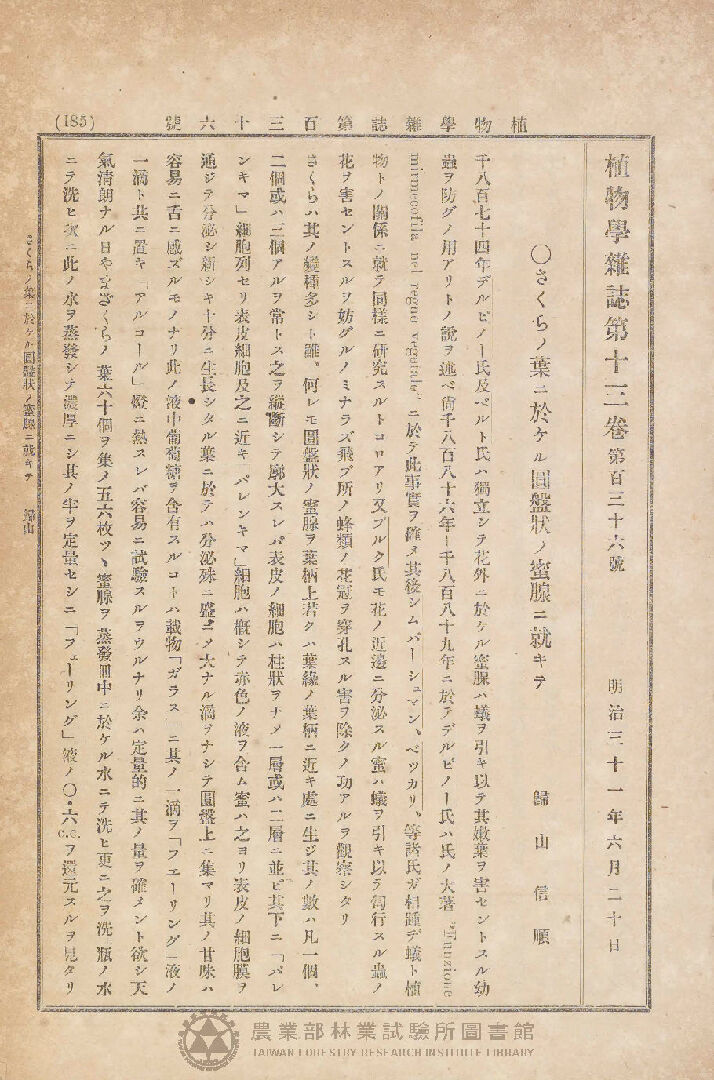 植物學雜誌第百三十六號
(185)
植物學雜誌第十二卷第百三十六號 明治三十一年六月二十日
〇さくらノ葉ニ於ケル圓盤狀ノ蜜腺ニ就キテ
歸山信順
千八百七十四年デルピノー氏及ベルト氏ハ獨立シテ花外ニ於ケル蜜腺ハ蟻ヲ引キ以テ其嫩葉ヲ害セントスル幼
蟲ヲ防グノ用アリトノ說ヲ述ベ尙千八百八十六年ー千八百八十九年ニ於テデルピノー氏ハ氏ノ大著 "Funzione
mirmecofila nel regno vegetale" ニ於テ此事實ヲ確メ其後シムパー シュマン、ベッカリ、等諸氏ガ相踵デ蟻ト植
物トノ關係ニ就テ同樣ニ研究スルトコロアリ又ブルク氏モ花ノ近邊ニ分泌スル蜜ハ蟻ヲ引キ以テ匍行スル蟲ノ
花ヲ害セントスルヲ妨グルノミナラズ飛ブ所ノ蜂類ノ花冠ヲ穿孔スル害ヲ除クノ功アルヲ觀察シタリ
さくらハ其ノ變種多シト雖、何レモ圓盤狀ノ蜜腺ヲ葉柄上若クハ葉緣ノ葉柄ニ近キ處ニ生ジ其ノ數ハ凡一個、
二個或ハ三個アルヲ常トス之ヲ縱斷シテ廓大スレバ表皮ノ細胞ハ柱狀ヲナシ一層或ハ二層ニ並ビ其下ニ「パレ
ンキマ」細胞列セリ表皮細胞及之ニ近キ「パレンキマ」細胞ハ槪シテ赤色ノ液ヲ含ム蜜ハ之ヨリ表皮ノ細胞膜ヲ
通ジテ分泌シ新シキ十分ニ生長シタル葉ニ於テハ分泌殊ニ盛ニシテ大ナル滴ヲナシテ圓盤上ニ集マリ其ノ甘味ハ
容易ニ舌ニ感ズルモノナリ此ノ液中葡萄糖ヲ含有スルコトハ載物「ガラス」ニ其ノ一滴ヲ「フェーリング」液ノ
一滴ト共ニ置キ「アルコール」燈ニ熱スレバ容易ニ試驗スルヲウルナリ余ハ定量的ニ其ノ量ヲ確メント欲シ天
氣淸朗ナル日やまざくらノ葉六十個ヲ集メ五六枚ヅヽ蜜腺ヲ蒸發皿中ニ於ケル水ニテ洗ヒ更ニ之ヲ洗瓶ノ水
ニテ洗ヒ次ニ此ノ水ヲ蒸發シテ濃厚ニシ其ノ半ヲ定量セシニ「フェーリング」液ノ〇・六c.c.ヲ還元スルヲ見タリ
さくらノ葉ニ於ケル圓盤狀ノ蜜腺ニ就キテ 歸山
農業部林業試驗所圖書館
TAIWAN FORESTRY RESEARCH INSTITUTE LIBRARY